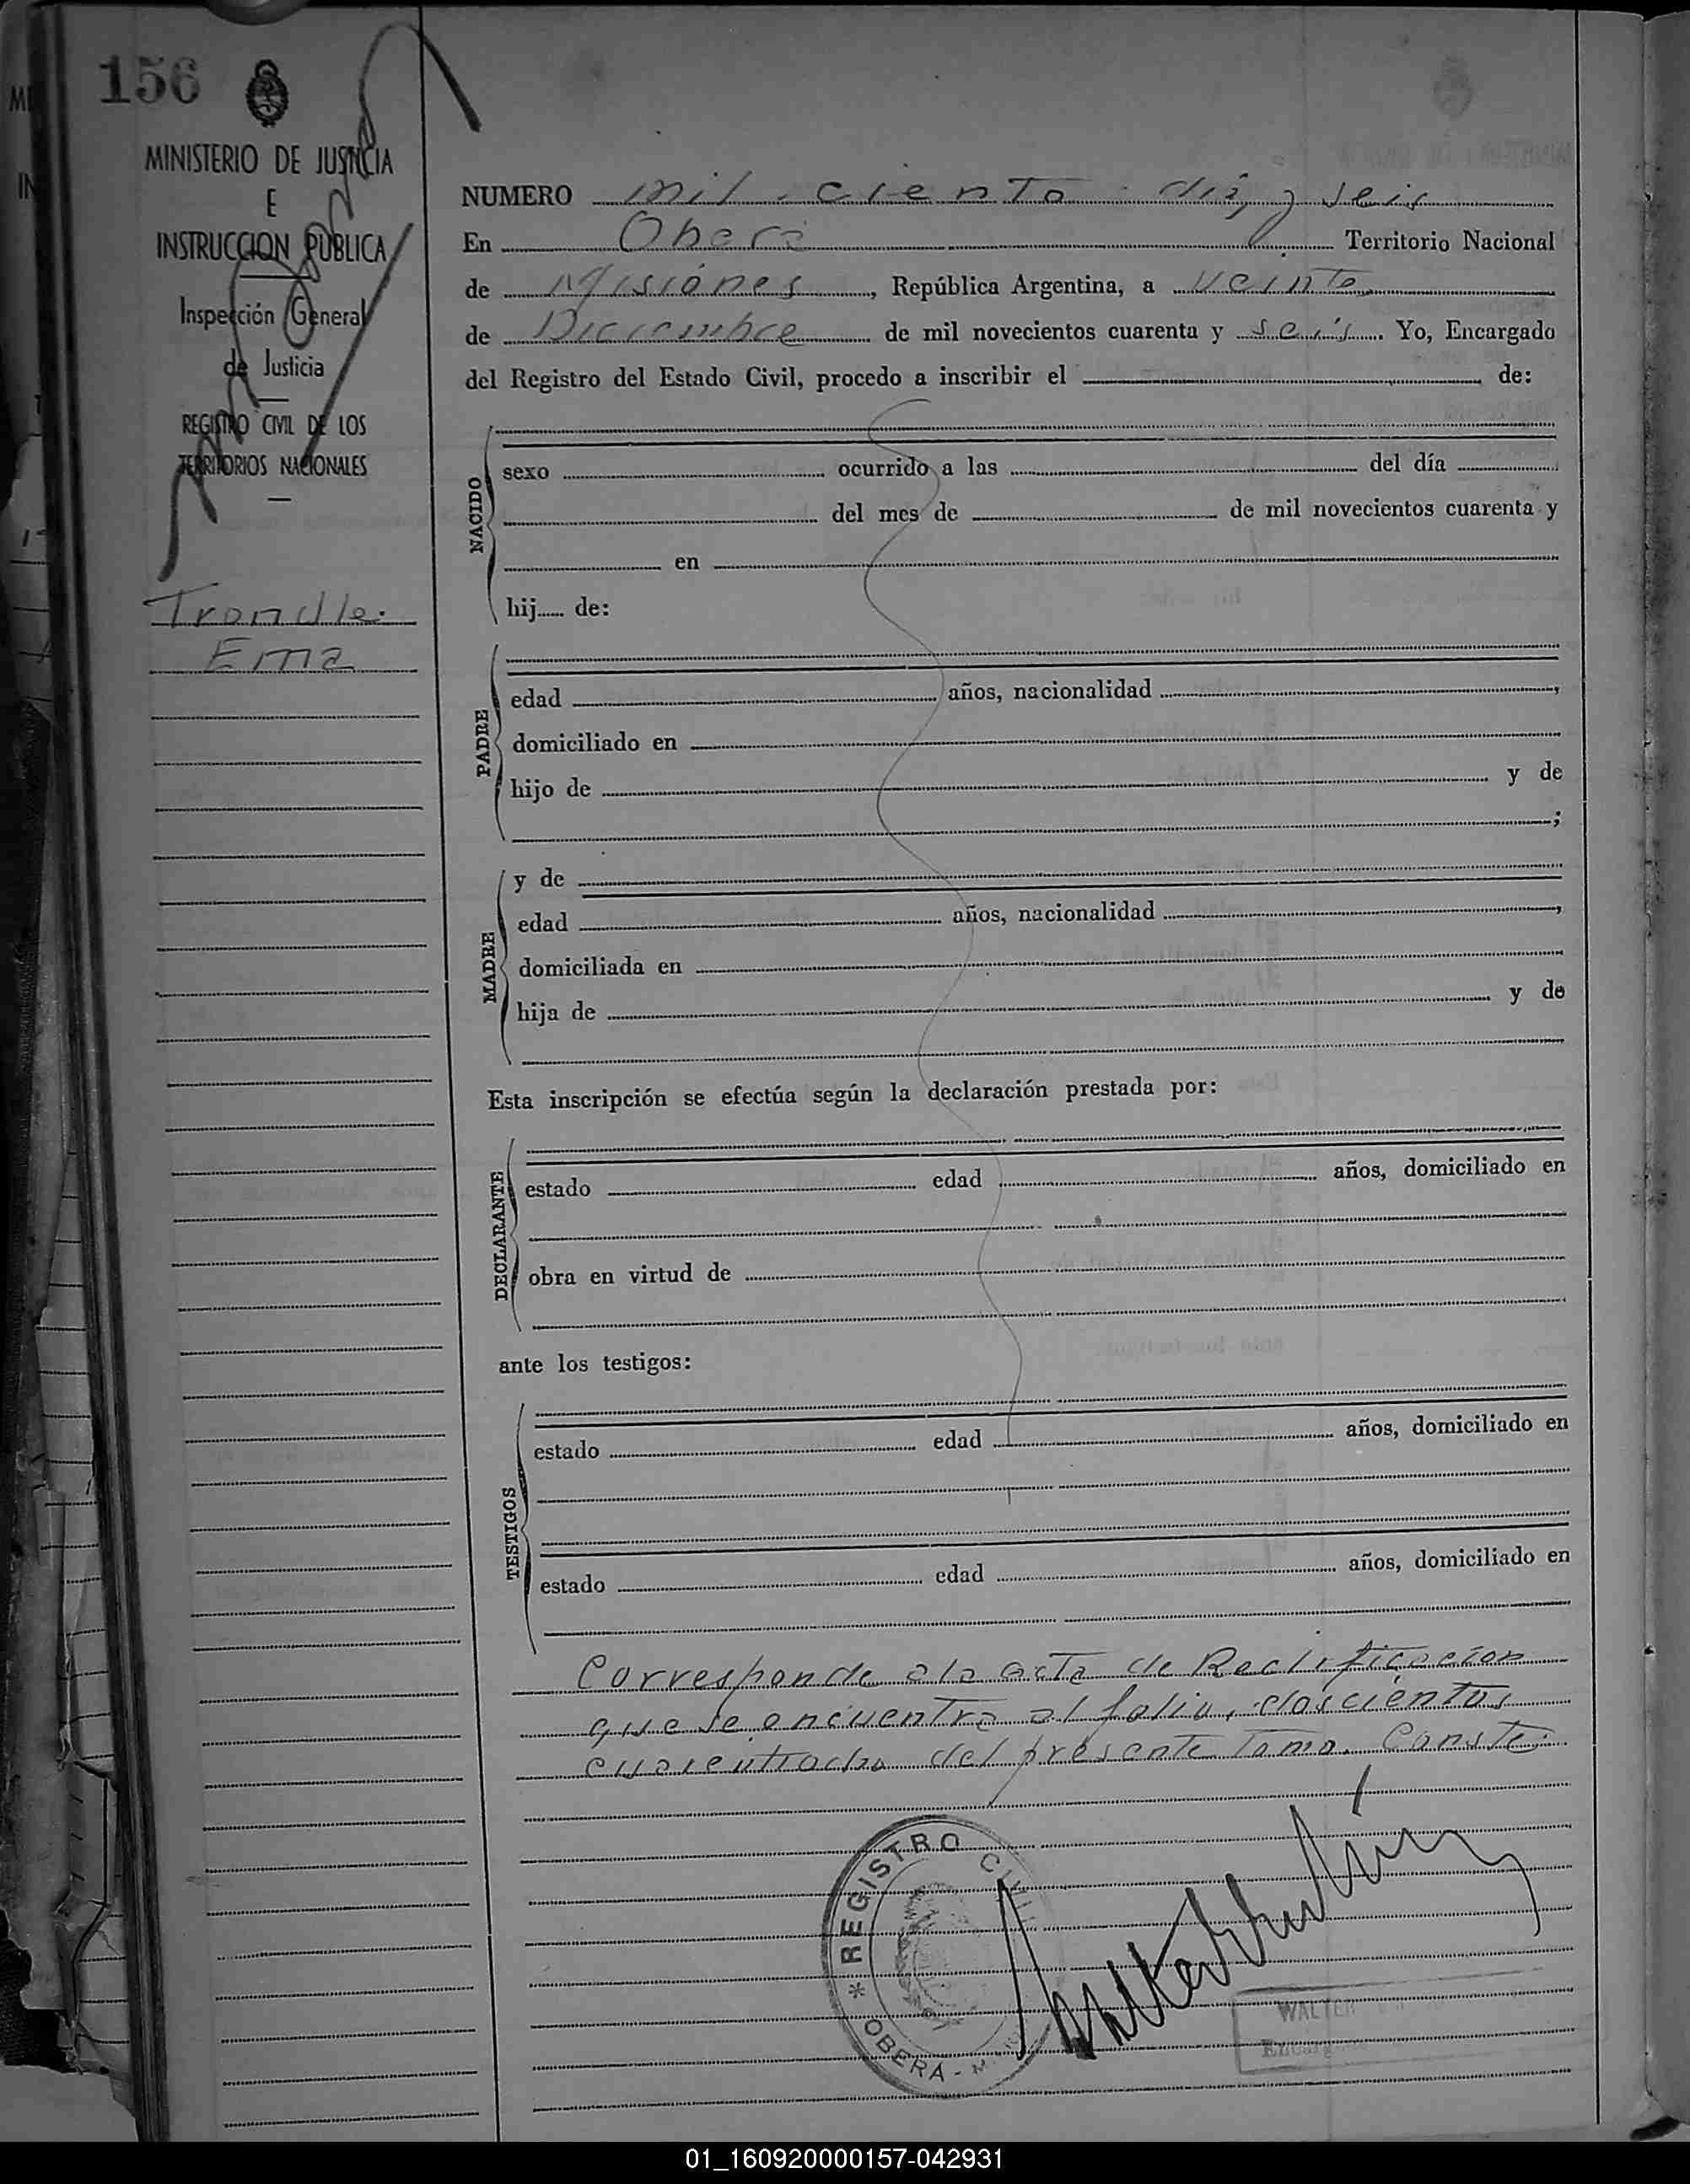 156
MINISTERIO DE JUSTICIA
E
INSTRUCCION PUBLICA
Inspección General
de Justicia
REGISTRO CIVIL DE LOS
TERRITORIOS NACIONALES
Trondle.
Ema
NUMERO mil ciento diz y seis
En Oberá Territorio Nacional
de Misiónes, República Argentina, a veinte
de Diciembre de mil novecientos cuarenta y seis. Yo, Encargado
del Registro del Estado Civil, procedo a inscribir el de:
NACIDO
sexo ocurrido a las del día
del mes de de mil novecientos cuarenta y
en
hij de:
PADRE
edad años, nacionalidad ,
domiciliado en
hijo de y de
;
MADRE
y de
edad años, nacionalidad ,
domiciliada en
hija de y de
Esta inscripción se efectúa según la declaración prestada por:
DECLARANTE
estado edad años, domiciliado en
obra en virtud de
ante los testigos:
TESTIGOS
estado edad años, domiciliado en
estado edad años, domiciliado en
Corresponde a la acta de Rectificación
que se encuentra al folio, doscientos
cuarentiocho del presente Tomo. Conste.
* REGISTRO CIVIL
OBERA -
WALTER
01_160920000157-042931